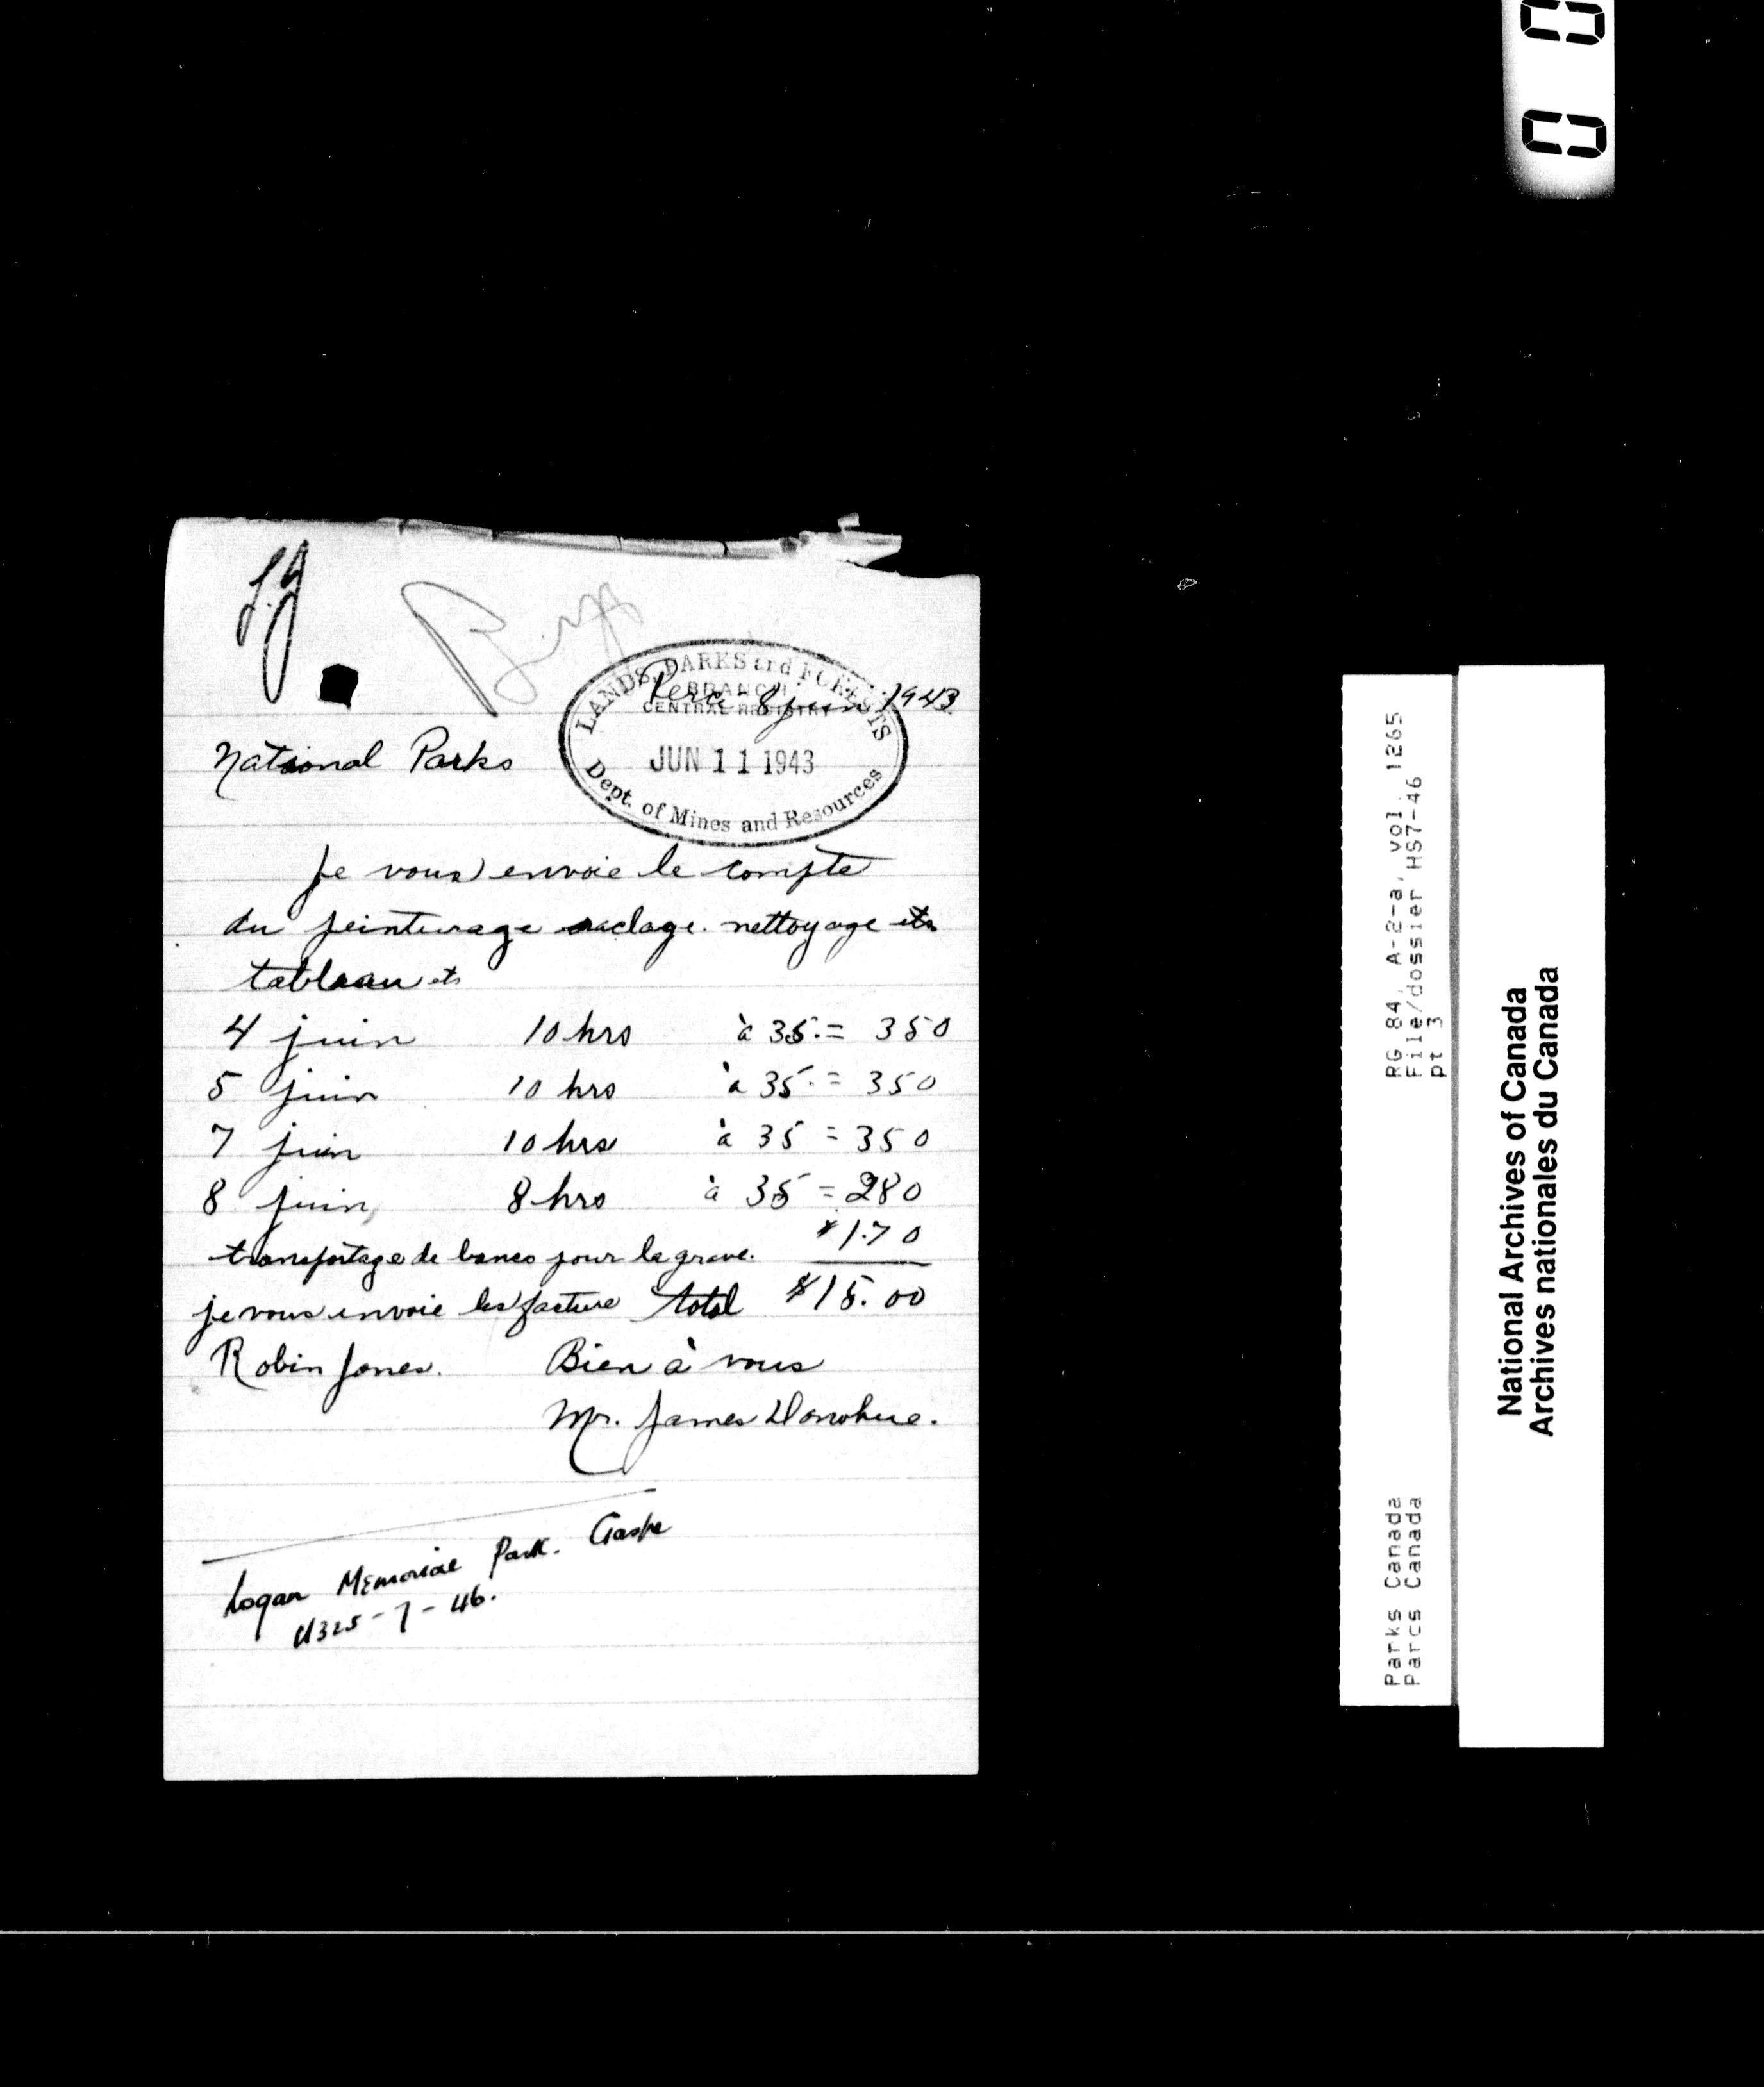 Percé 8 juin 1943
LANDS, PARKS and FORESTS
BRANCH
CENTRAL REGISTRY
JUN 11 1943
Dept. of Mines and Resources
National Parks
Je vous envoie le compte
du peinturage raclage. nettoyage etc
tableau etc
4 juin 10 hrs à 35.= 350
5 juin 10 hrs à 35.= 350
7 juin 10 hrs à 35 = 350
8 juin, 8 hrs à 35 = 280
transportage de bancs pour la grave. $1.70
je vous envoie les facture total $15.00
Robin Jones. Bien à vous
Mr. James Donohue.
Logan Memorial Park. Gaspe
U325-7-46.
RG 84, A-2-a, vol. 1265
File/dossier HS7-46
pt 3
Parks Canada
Parcs Canada
National Archives of Canada
Archives nationales du Canada